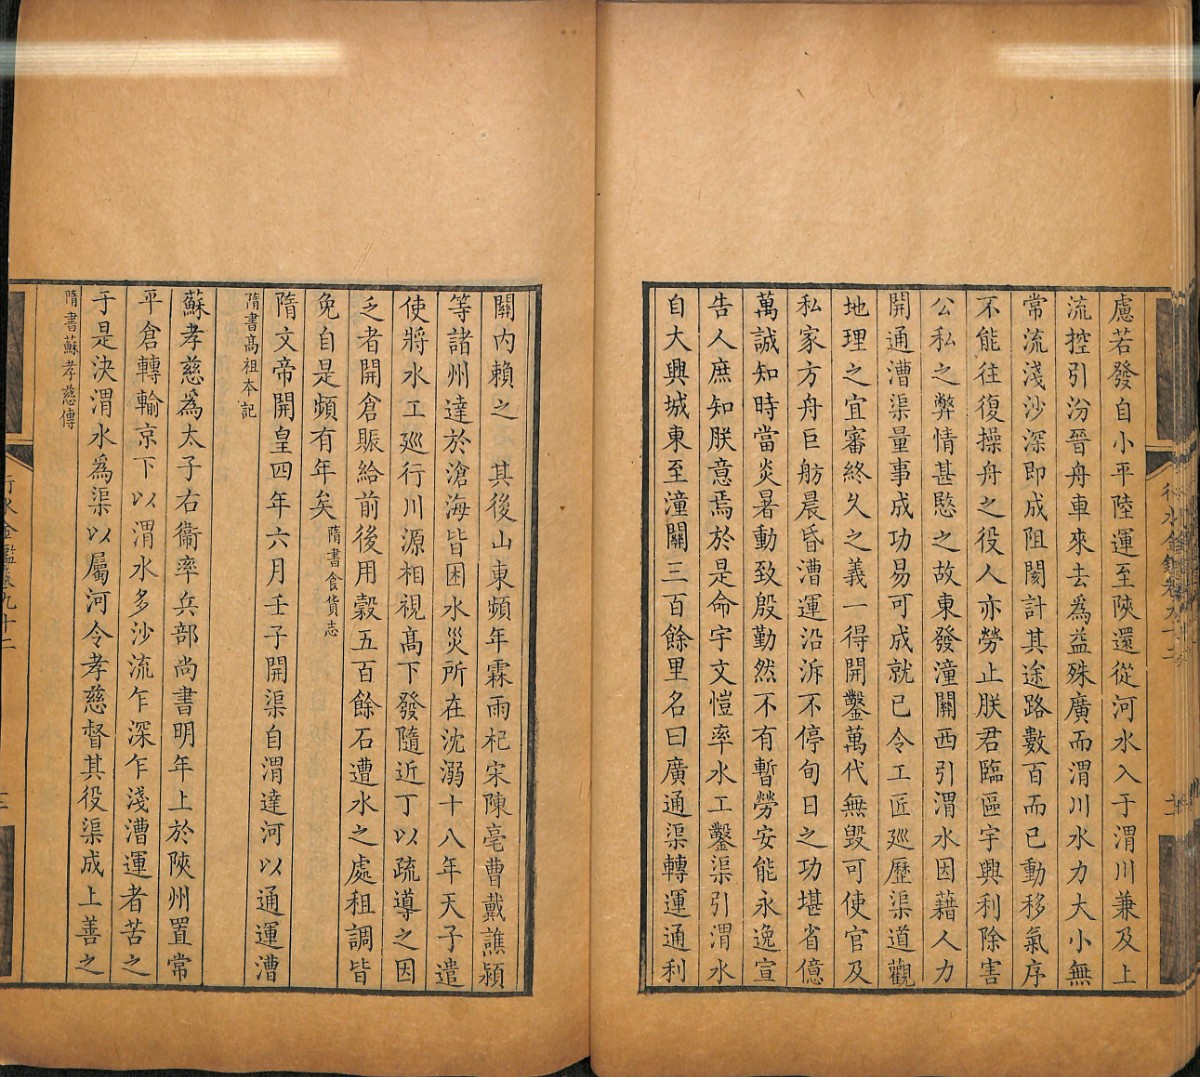 慮若發自小平陸運至陝還從河水入于渭川兼及上
流控引汾晉舟車來去為益殊廣而渭川水力大小無
常流淺沙深即成阻閡計其途路數百而已動移氣序
不能往復操舟之役人亦勞止朕君臨區宇興利除害
公私之弊情甚愍之故東發潼關西引渭水因藉人力
開通漕渠量事成功易可成就已令工匠巡歷渠道觀
地理之宜審終久之義一得開鑿萬代無毀可使官及
私家方舟巨舫晨昏漕運沿泝不停旬日之功堪省億
萬誠知時當炎暑動致殷勤然不有暫勞安能永逸宣
告人庶知朕意焉於是命宇文愷率水工鑿渠引渭水
自大興城東至潼關三百餘里名曰廣通渠轉運通利
關內賴之 其後山東頻年霖雨杞宋陳亳曹戴譙潁
等諸州達於滄海皆困水災所在沈溺十八年天子遣
使將水工巡行川源相視高下發隨近丁以疏導之因
乏者開倉賑給前後用穀五百餘石遭水之處租調皆
免自是頻有年矣 隋書食貨志
隋文帝開皇四年六月壬子開渠自渭達河以通運漕
隋書高祖本記
蘇孝慈為太子右衞率兵部尚書明年上於陝州置常
平倉轉輸京下以渭水多沙流乍深乍淺漕運者苦之
于是決渭水為渠以屬河令孝慈督其役渠成上善之
隋書蘇孝慈傳
行水金鑑卷九十二